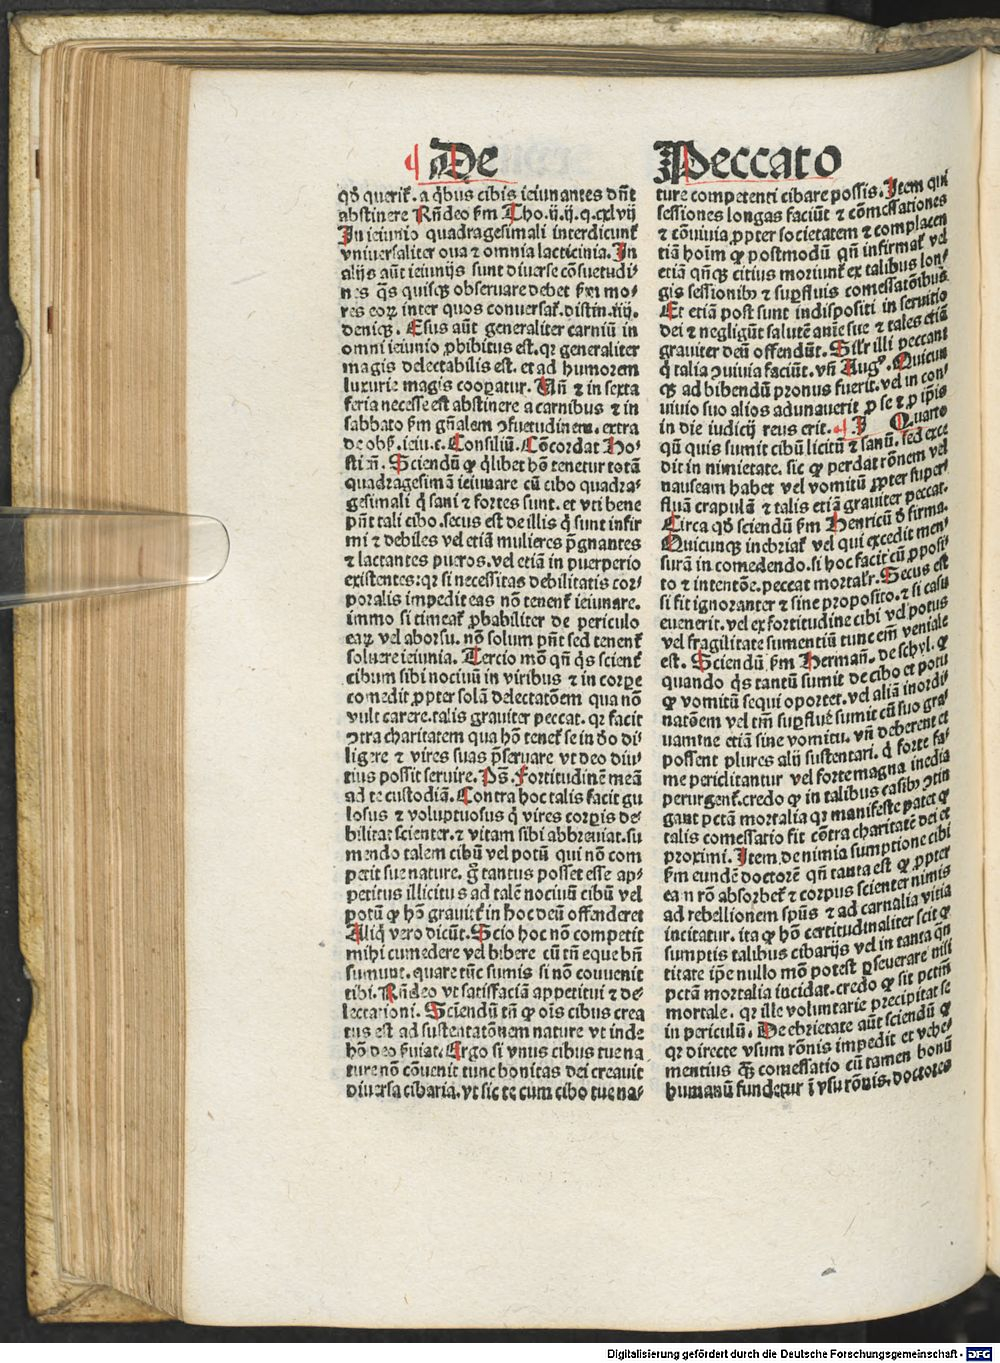 ¶ De Peccato
qđ querit̄. a q̄bus cibis ieiunantes dn̄t
abstinere Rn̄deo ẜm Tho.ij.ij.q.cxlvij
In ieiunio quadragesimali interdicunt̄
vniuersaliter oua ⁊ omnia lacticinia. In
alijs aūt ieiunijs sunt diuerse cōsuetudi-
nes q̄s quisqꝫ obseruare debet ẜm mo-
res eoꝝ inter quos conuersat̄. distin.iiij.
deniqꝫ. Esus aūt generaliter carniū in
omni ieiunio ꝓhibitus est. qꝛ generaliter
magis delectabilis est. et ad humorem
luxurie magis cooꝑatur. Vn̄ ⁊ in sexta
feria necesse est abstinere a carnibus ⁊ in
sabbato ẜm gn̄alem ꝯsuetudinem. extra
de obẜ. ieiu.c. Consiliū. Cōcordat Ho-
stiēn̄. Sciendū ꝙ q̄libet hō tenetur totā
quadragesimā ieiunare cū cibo quadra-
gesimali q̄ sani ⁊ fortes sunt. et vti bene
pn̄t tali cibo. secus est de illis q̄ sunt infir
mi ⁊ debiles vel etiā mulieres p̄gnantes
⁊ lactantes pueros. vel etiā in puerperio
existentes: qꝛ si necessitas debilitatis cor-
poralis impedit eas nō tenent̄ ieiunare.
immo si timeat̄ ꝓbabiliter de periculo
eaꝝ vel aborsu. nō solum pn̄t sed tenent̄
soluere ieiunia. Tercio mō qn̄ q̄s scient̄
cibum sibi nociuū in viribus ⁊ in corꝑe
comedit ꝓpter solā delectatōem qua nō
vult carere. talis grauiter peccat. qꝛ facit
ꝯtra charitatem qua hō tenet̄ se in deo di-
ligere ⁊ vires suas p̄seruare vt deo diu-
tius possit seruire. Ps̄. Fortitudinē meā
ad te custodiā. Contra hoc talis facit gu
losus ⁊ voluptuosus q̄ vires corꝑis de-
bilitat scienter. ⁊ vitam sibi abbreuiat. su
mendo talem cibū vel potū qui nō com
petit sue nature. g̊ tantus posset esse ap-
petitus illicitus ad talē nociuū cibū vel
potū ꝙ hō grauit̄ in hoc deū offenderet
Aliq̄ vero dicūt. Scio hoc nō competit
mihi cumedere vel bibere cū tn̄ eque bn̄
sumunt. quare tūc sumis si nō conuenit
tibi. Rn̄deo vt satisfaciā appetitui ⁊ de-
lectationi. Sciendū tn̄ ꝙ oīs cibus crea
tus est ad sustentatōnem nature vt inde
hō deo ẜuiat. Ergo si vnus cibus tue na
ture nō cōuenit tunc bonitas dei creauit
diuersa cibaria. vt sic te cum cibo tue na-
ture competenti cibare possis. Item qui
sessiones longas faciūt ⁊ cōmessationes
⁊ cōuiuia ꝓpter societatem ⁊ complacen
tiā hoīm ꝙ postmodū qn̄ infirmat̄ vel
etiā qn̄qꝫ citius moriunt̄ ex talibus lon-
gis sessionibꝰ ⁊ suꝑfluis comessatōibus
Et etiā post sunt indispositi in seruitio
dei ⁊ negligūt salutē anīe sue ⁊ tales etiā
grauiter deū offendūt. Silr̄ illi peccant
q̄ talia ꝯuiuia faciūt. vn̄ Augꝰ. Quicun
qꝫ ad bibendū pronus fuerit. vel in con-
uiuio suo alios adunauerit ꝓ se ⁊ ꝓ ip̄is
in die iudicij reus erit. ¶ J Quarto
qn̄ quis sumit cibū licitū ⁊ sanū. sed exce
dit in nimietate. sic ꝙ perdat rōnem vel
nauseam habet vel vomitū ꝓpter super-
fluā crapulā ⁊ talis etiā grauiter peccat.
Circa qđ sciendū ẜm Henricū đ firma.
Quicunqꝫ inebriat̄ vel qui excedit men-
surā in comedendo. si hoc facit cū ꝓposi-
to ⁊ intentōe. peccat mortalr̄. Secus est
si fit ignoranter ⁊ sine proposito. ⁊ si casu
euenerit. vel ex fortitudine cibi vel potus
vel fragilitate sumentiū tunc em̄ veniale
est. Sciendū ẜm Hermañ. de schyl. ꝙ
quando q̄s tantū sumit de cibo et potu
ꝙ vomitū sequi oportet. vel aliā inordi
natōem vel tm̄ suꝑflue sumit cū suo gra-
uamine etiā sine vomitu. vn̄ deberent et
possent plures alij sustentari. q̄ forte fa-
me periditantur vel forte magna inedia
perurgent̄. credo ꝙ in talibus casibꝰ ꝯtin
gant pctā mortalia qꝛ manifeste patet ꝙ
talis comessatio fit cōtra charitatē dei et
proximi. Item de nimia sumptione cibi
ẜm eundē doctorē qn̄ tanta est ꝙ ꝓpter
ea n rō absorbet̄ ⁊ corpus scienter nimis
ad rebellionem spūs ⁊ ad carnalia vitia
incitatur. ita ꝙ hō certitudinaliter scit ꝙ
sumptis talibus cibarijs vel in tanta qn̄
titate ip̄e nullo mō potest ꝑseuerare nisi
pctā mortalia incidat. credo ꝙ sit pctm̄
mortale. qꝛ ille voluntarie precipitat se
in periculū. De ebrietate aūt sciendū ꝙ
qꝛ directe vsum rōnis impedit et vehe-
mentius qꝫ comessatio cū tamen bonū
humanū fundetur ī vsu rōnis. doctores
Digitalisierung gefördert durch die Deutsche Forschungsgemeinschaft - DFG